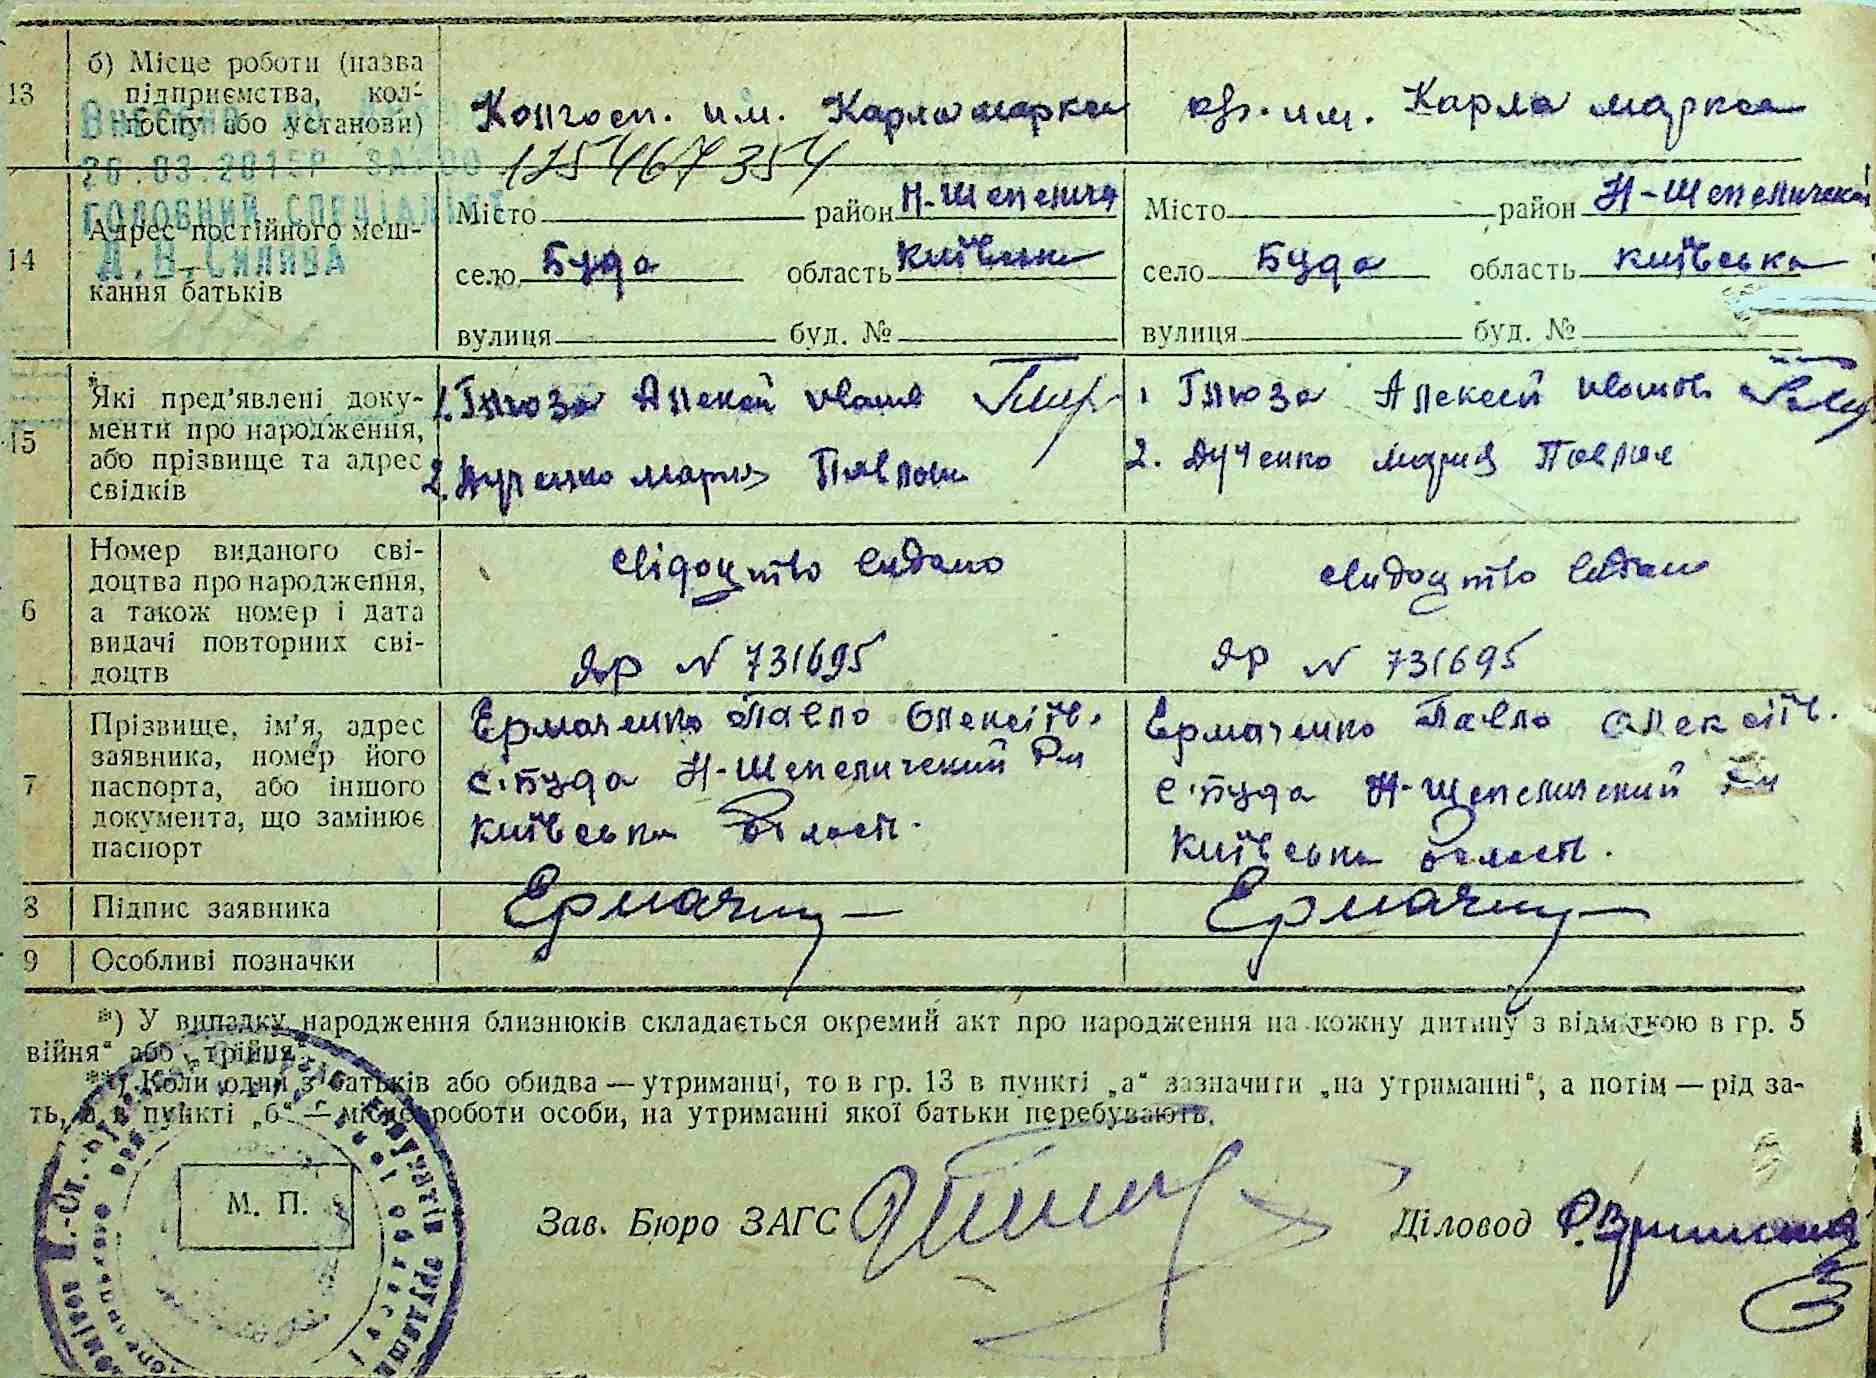 13
б) Місце роботи (назва
підприємства, кол-
госпу або установи)
Колгосп. им. Карла маркса
к/г. им. Карла маркса
Внесено
26.03.2015Р
175467354
ГОЛОВНИЙ СПЕЦІАЛІСТ
14
Адрес постійного меш-
кання батьків
Місто район Н-Шепелич
село Буда область Київська
вулиця буд. №
Місто район Н-Шепелический
село Буда область Київська
вулиця буд. №
15
Які пред'явлені доку-
менти про народження,
або прізвище та адрес
свідків
1. Глюза Алексей
2. Дученко Мария Павлов
1 Глюза Алексей
2. Дученко Мария Павлов
6
Номер виданого сві-
доцтва про народження,
а також номер і дата
видачі повторних сві-
доцтв
свідоцтво видано
ЯР N 731695
свидоцтво видано
ЯР N 731695
7
Прізвище, ім'я, адрес
заявника, номер його
паспорта, або іншого
документа, що замінює
паспорт
Ермаченко Павло Олексіїв.
с. Буда Н-Шепелический Р-н
Київська област.
Ермаченко Павло Олексіїв.
с. Буда Н-Шепелический Р-н
Київська област.
8
Підпис заявника
9
Особливі позначки
*) У випадку народження близнюків складається окремий акт про народження на кожну дитину з відміткою в гр. 5
війня" або „трійня"
**) Коли один з батьків або обидва — утриманці, то в гр. 13 в пункті „а" зазначити „на утриманні", а потім — рід за-
ть, а в пункті „б" — місце роботи особи, на утриманні якої батьки перебувають.
М. П.
Зав. Бюро ЗАГС
Діловод